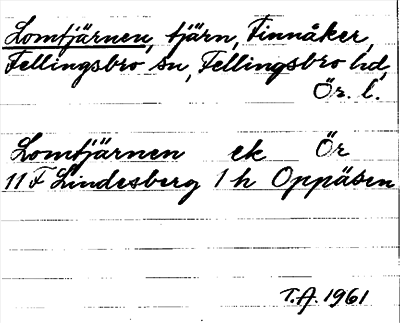 Lomtjärnen, tjärn, Finnåker,
Fellingsbro sn, Fellingsbro hd,
Ör. l.
Lomtjärnen ek Ör
11 F Lindesberg 1 h Oppåsen
T.A. 1961